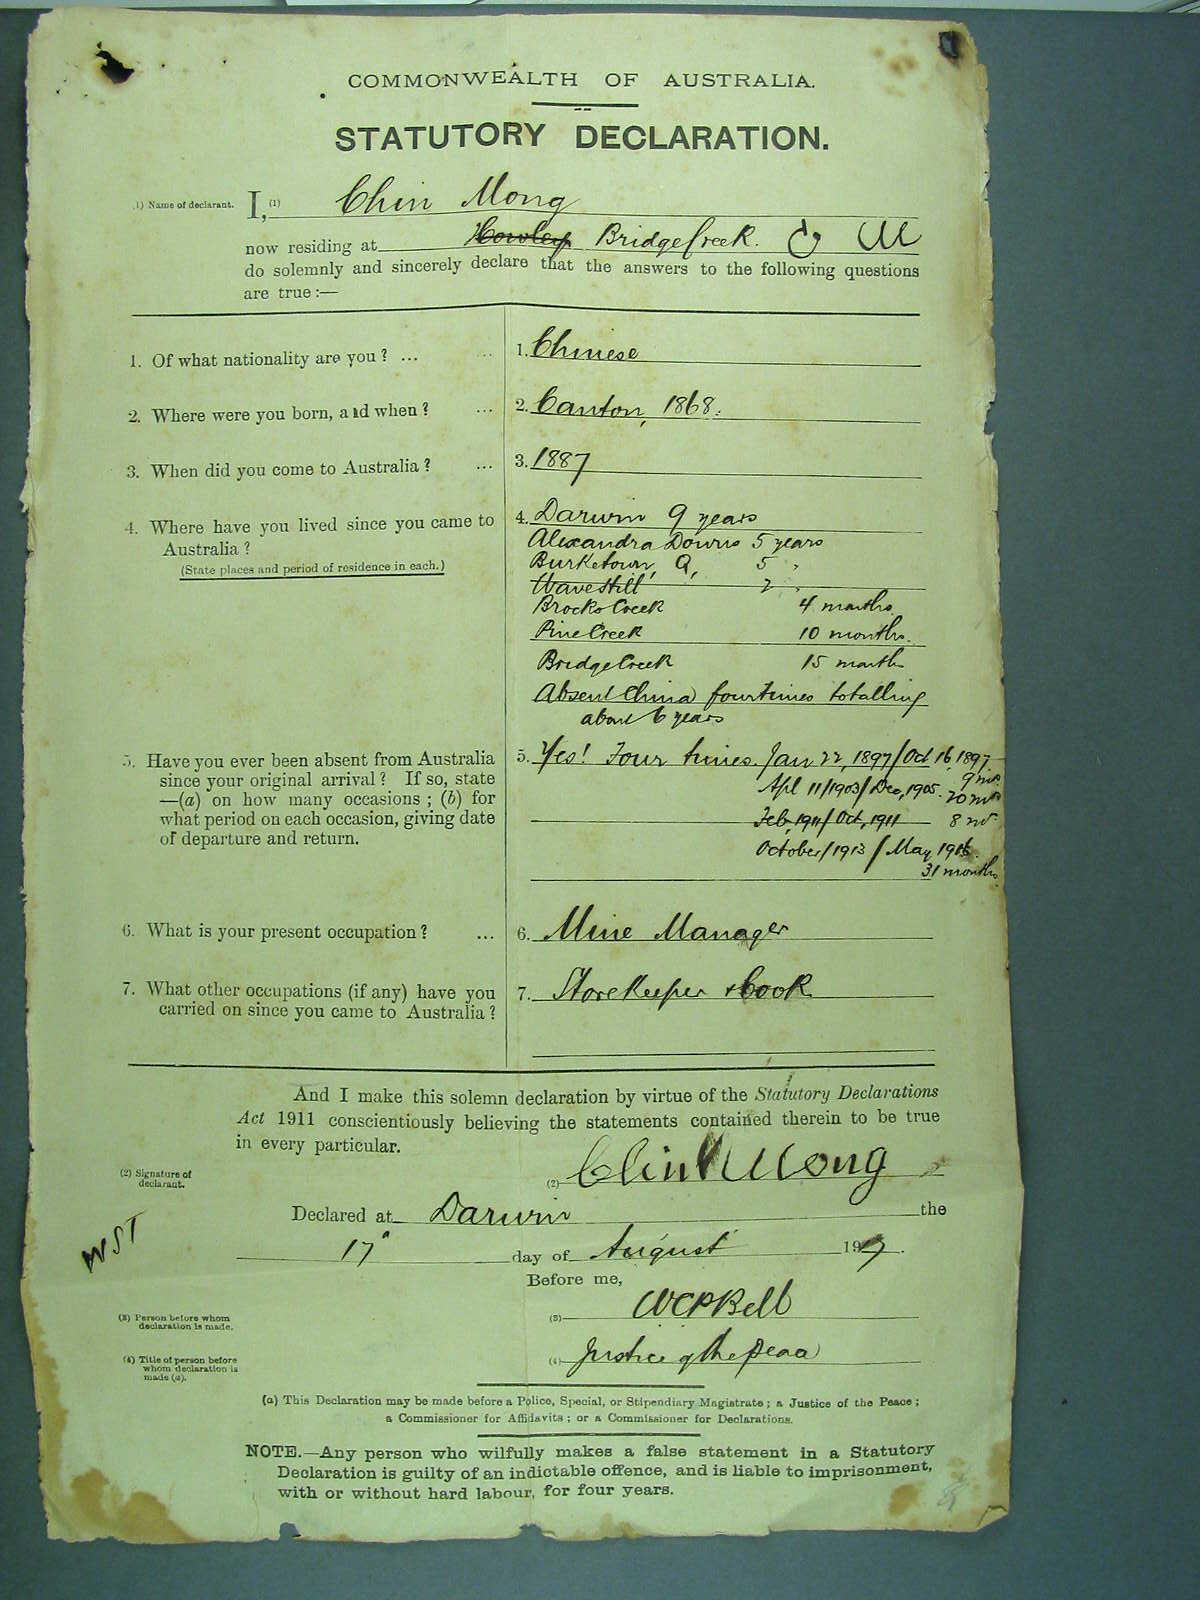 COMMONWEALTH OF AUSTRALIA.
STATUTORY DECLARATION.
(1) Name of declarant. I, (1) Chin Mong
now residing at Howley Bridge Creek.
do solemnly and sincerely declare that the answers to the following questions
are true:—
1. Of what nationality are you? ... ... 1. Chinese
2. Where were you born, and when? ... 2. Canton, 1868.
3. When did you come to Australia? ... 3. 1887
4. Where have you lived since you came to 4. Darwin 9 years
Australia? Alexandra Downs 5 years
(State places and period of residence in each.) Burketown, Q, 5 "
Wave Hill 2 "
Brocks Creek 4 months.
Pine Creek 10 months.
Bridge Creek 15 months
Absent China four times totalling
about 6 years
5. Have you ever been absent from Australia 5. Yes! Four times. Jan 22, 1897/Oct 16, 1897.
since your original arrival? If so, state 9 mos.
—(a) on how many occasions; (b) for Apl 11/1903/Dec, 1905. 20 mos
what period on each occasion, giving date Feb, 1911/Oct, 1911 8 ms
of departure and return. October/1913/May 1916.
31 months
6. What is your present occupation? ... 6. Mine Manager
7. What other occupations (if any) have you 7. Storekeeper & Cook
carried on since you came to Australia?
And I make this solemn declaration by virtue of the Statutory Declarations
Act 1911 conscientiously believing the statements contained therein to be true
in every particular.
(2) Signature of
declarant. (2) Chin Mong
Declared at Darwin the
WST
17" day of August 1917.
Before me,
(3) Person before whom
declaration is made. (3) WCPBell
(4) Title of person before
whom declaration is
made (a). (4) Justice of the Peace
(a) This Declaration may be made before a Police, Special, or Stipendiary Magistrate; a Justice of the Peace;
a Commissioner for Affidavits; or a Commissioner for Declarations.
NOTE.—Any person who wilfully makes a false statement in a Statutory
Declaration is guilty of an indictable offence, and is liable to imprisonment,
with or without hard labour, for four years.